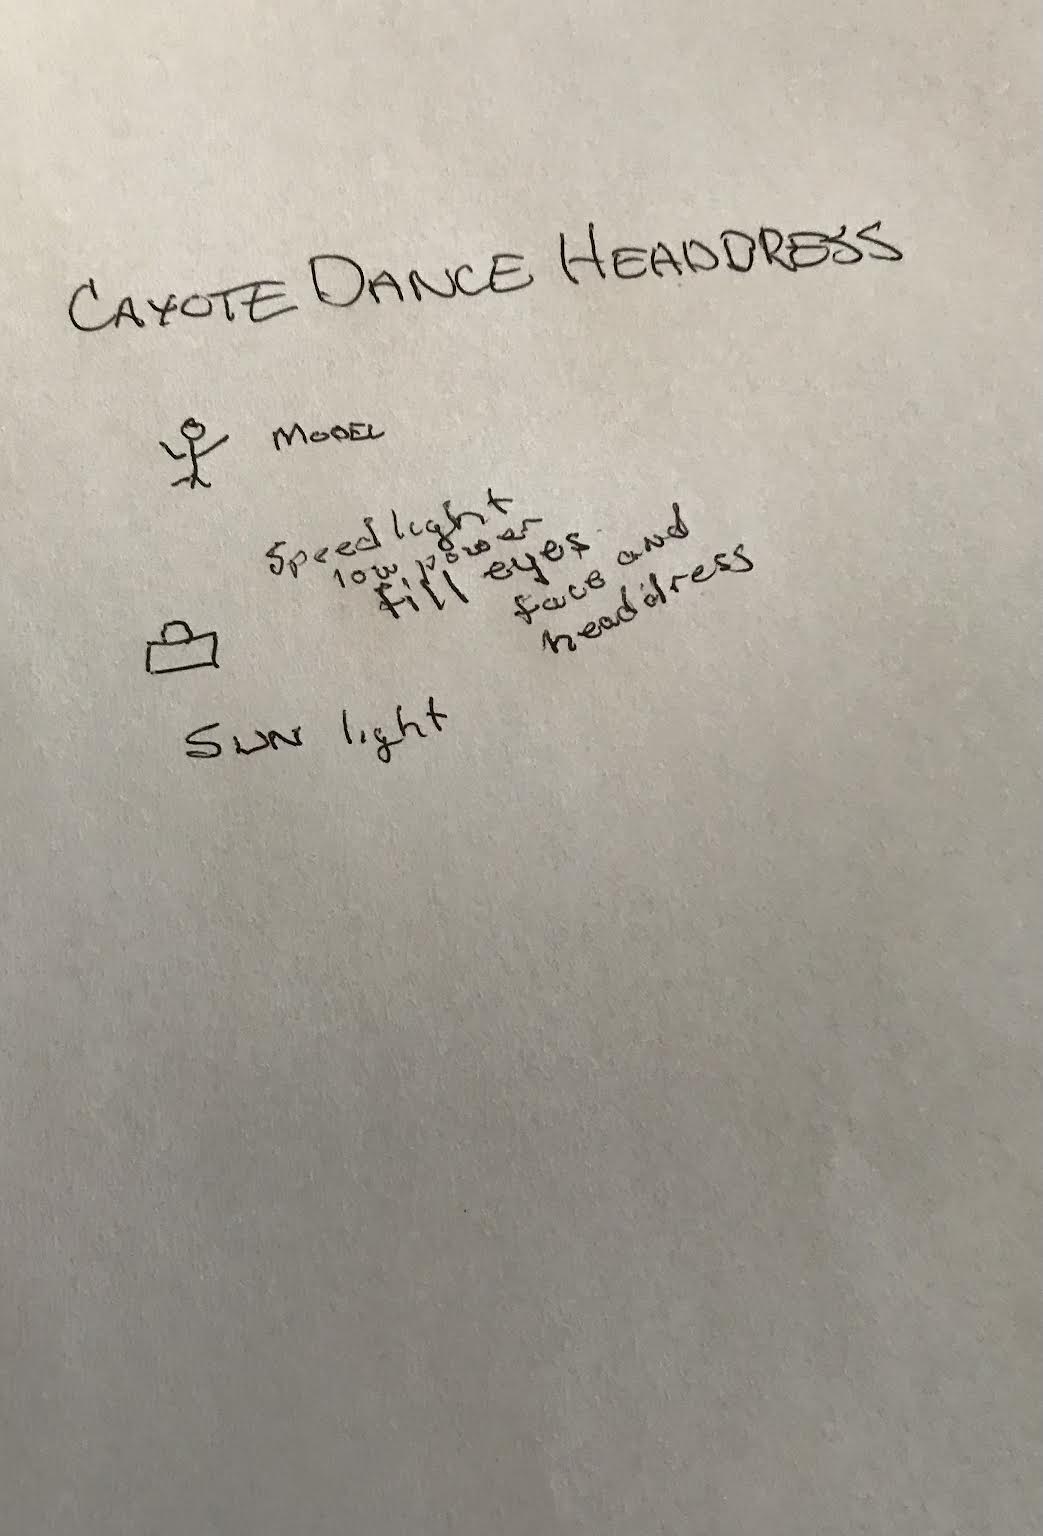 CAYOTE DANCE HEADDRESS
MODEL
Speed light
low power
fill eyes
face and
headdress
SUN light